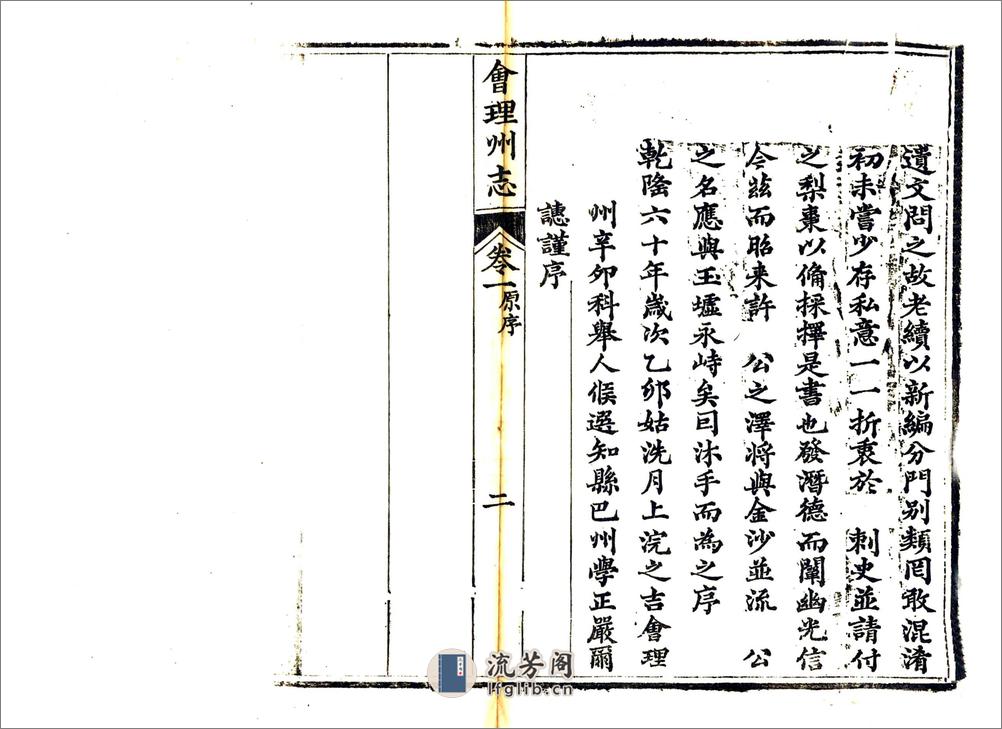 遺文問之故老續以新編分門别類罔敢混淆
初未嘗少存私意一一折衷於　刺史並請付
之梨棗以備採擇是書也發潛德而闡幽光信
今茲而昭来許　公之澤將與金沙並流　公
之名應與玉墟永峙矣囙沐手而為之序
乾隆六十年嵗次乙卯姑洗月上浣之吉會理
州辛卯科舉人候選知縣巴州學正嚴爾
譓謹序
會理州志
卷一
原序
二
流芳阁
lfglib.cn